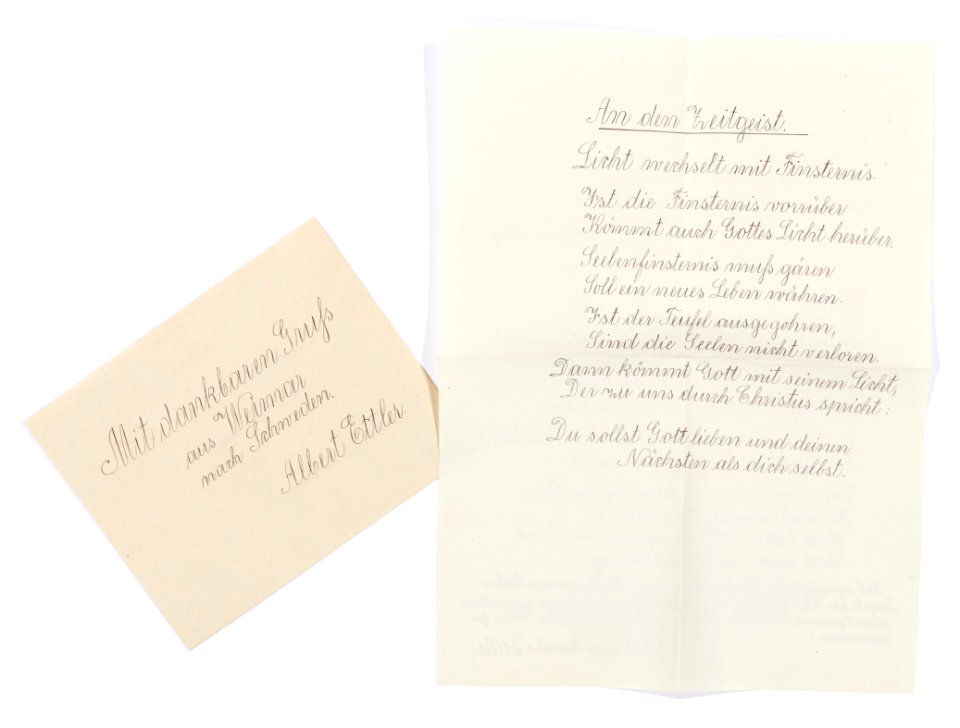 Mit dankbaren Gruß
aus Weimar
nach Schweden.
Albert Ettler.
An den Zeitgeist.
Licht wechselt mit Finsternis.
Ist die Finsternis vorrüber
Kömmt auch Gottes Licht herüber.
Seelenfinsternis muß gären
Soll ein neues Leben währen.
Ist der Teufel ausgegohren,
Sind die Seelen nicht verloren.
Dann kömmt Gott mit seinem Licht,
Der zu uns durch Christus spricht:
Du sollst Gott lieben und deinen
Nächsten als dich selbst.